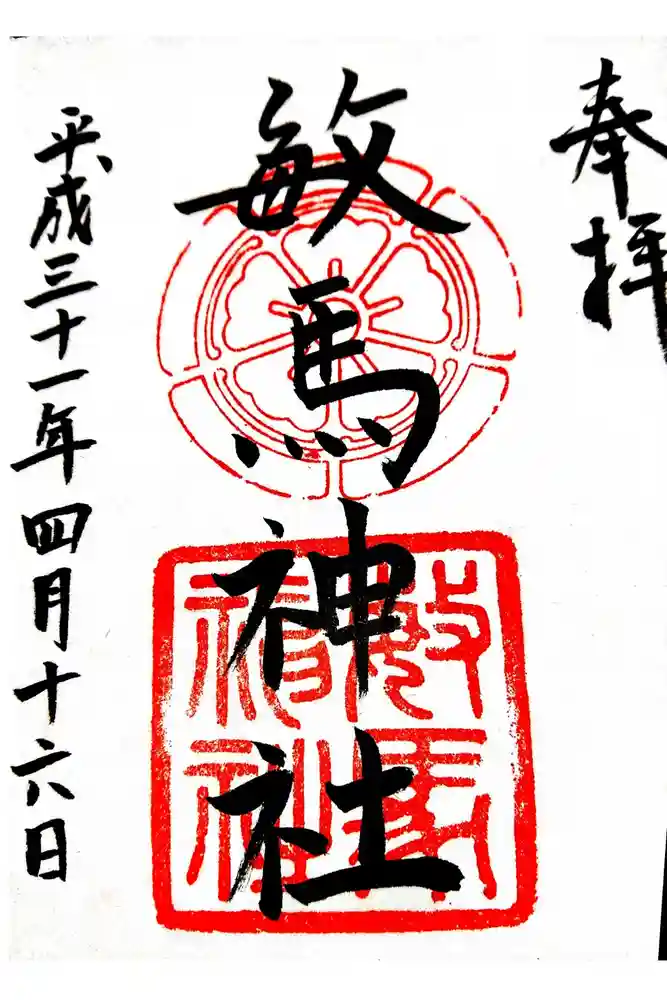 奉拝
敏馬神社
平成三十一年四月十六日